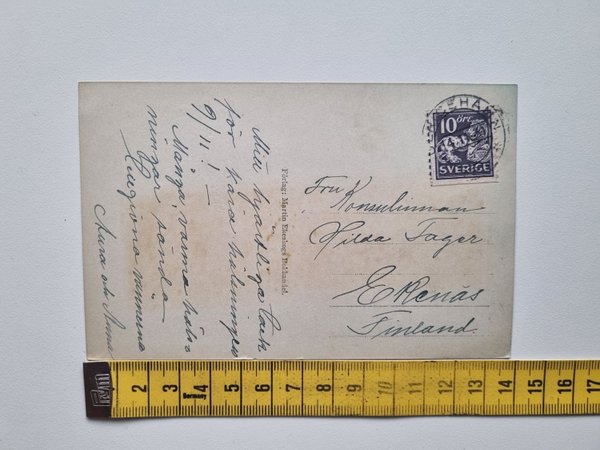 Mitt hjärtliga tack
för kära hälsningen
9/11! –
Många, varma häls-
ningar sända
Aura och Anna
Förlag: Martin Bokhandel.
10 ÖRE
SVERIGE
Fru Konsulinnan
Hilda Fager
Ekenäs
Finland.
2 3 4 5 6 7 8 9 10 11 12 13 14 15 16 17
Germany